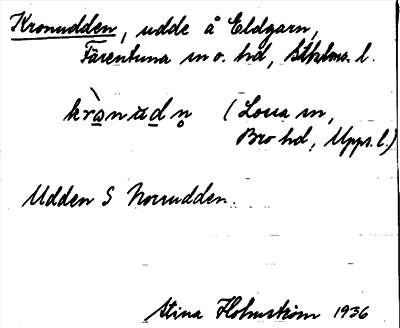 Kronudden, udde å Eldgarn,
Färentuna sn o. hd, Sthlms l.
krònudn (Lossa sn,
Bro hd, Upps. l.)
Udden S Norrudden.
Stina Holmström 1936